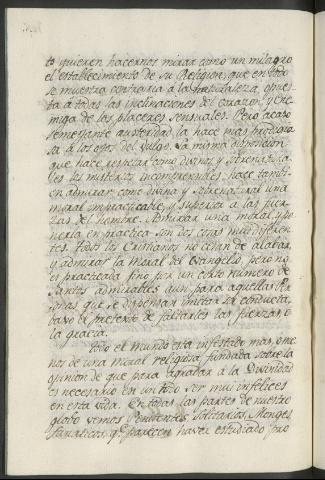 to quieren hacernos mirar como un milagro
el establecimiento de su Religion, que en todo
se muestra contraria a la naturaleza, opues
ta á todas las inclinaciones del corazon, y ene
miga de los placeres sensuales. Pero acaso
semejante austeridad la hace mas prodigio
sa á los ojos del vulgo. La misma disposicion
que hace respetar como divinos y sobrenatura
les los misterios incomprensibles hace tambi
en admirar como divina y sobrenatural una
moral impracticable, y superior a las fuer
zas del hombre. Admirar una moral, y po
nerla en practica son dos cosas mui diferen
tes. Todos los Cristianos no cesan de alabar,
y admirar la moral del Evangelio, pero no
es practicada sino por un corto numero de
Santos admirables aun para aquellas Per
sonas que se dispensan imitar la conducta,
bajo el pretexto de faltarles las fuerzas o
la gracia.
Todo el mundo esta infestado mas, o me
nos de una moral religiosa fundada sobre la
opinion de que para agradar á la Divinidad
es necesario en un todo ser mui infelices
en esta vida. En todas las partes de nuestro
globo vemos Penitentes, Solitarios, Monges
fanaticos, qe. parecen haver estudiado pro